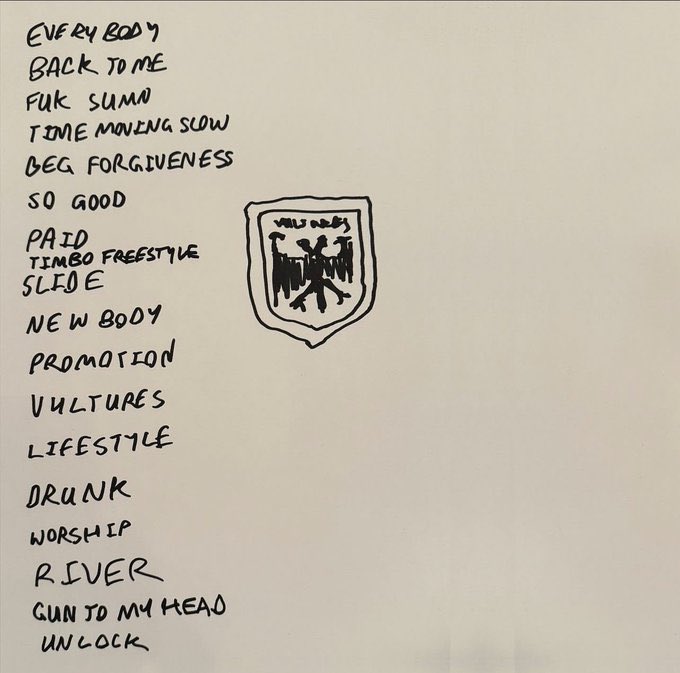 EVERYBODY
BACK TO ME
FUK SUMN
TIME MOVING SLOW
BEG FORGIVENESS
SO GOOD
PAID
TIMBO FREESTYLE
SLIDE
VULTURES
NEW BODY
PROMOTION
VULTURES
LIFESTYLE
DRUNK
WORSHIP
RIVER
GUN TO MY HEAD
UNLOCK